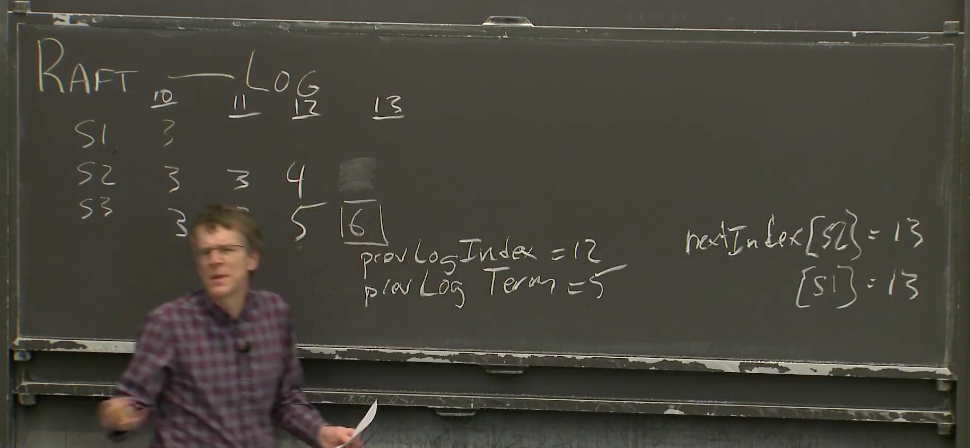 RAFT — LOG
10 11 12 13
S1 3
S2 3 3 4
S3 3 5 6
prevLogIndex = 12
prevLog Term = 5
nextIndex[S2] = 13
[S1] = 13